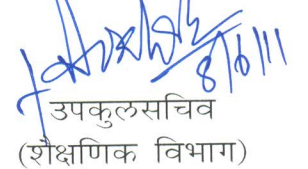 8/6/11
उपकुलसचिव
(शैक्षणिक विभाग)